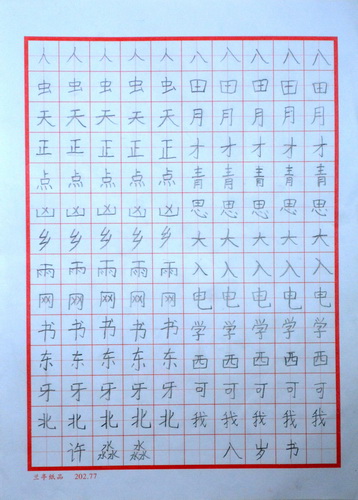 人人人人人八八八八八
虫虫虫虫虫田田田田田
天天天天天月月月月月
正正正正正才才才才才
点点点点点青青青青青
凶凶凶凶凶思思思思思
乡乡乡乡乡大大大大大
雨雨雨雨雨入入入入入
网网网网网电电电电电
书书书书书学学学学学
东东东东东西西西西西
牙牙牙牙牙可可可可可
北北北北北我我我我我
许淼淼 八岁书
兰亭纸品 202.77